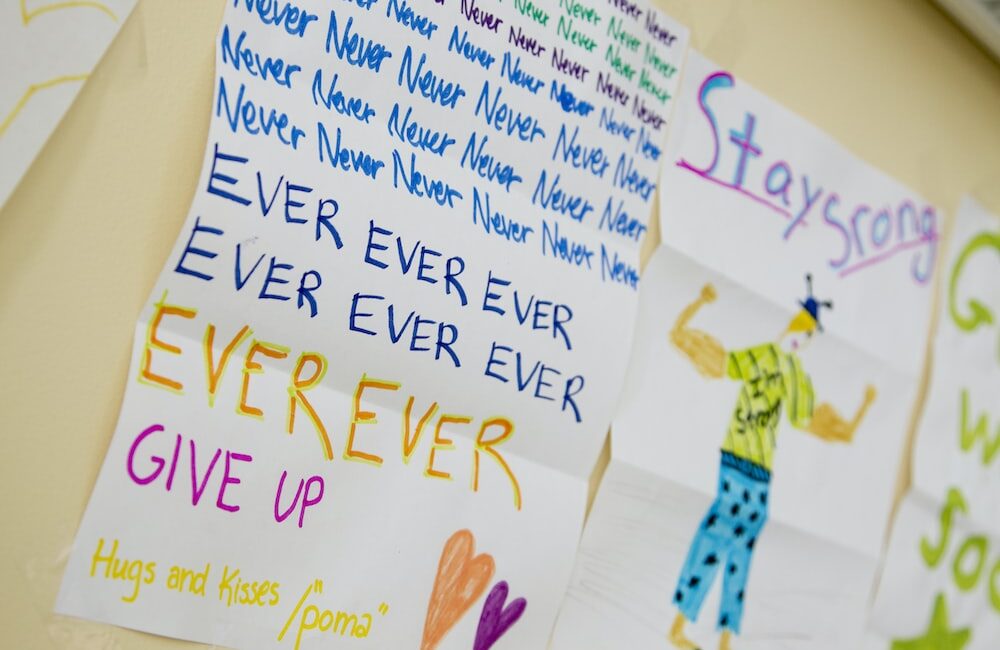 Never Never
Never Never Never
Never Never Never Never
Never Never Never Never Never
Never Never Never Never Never Never Never
Never Never Never Never Never Never
Never Never Never Never Never Never
Never Never Never Never Never Never
EVER EVER EVER
EVER EVER EVER
EVER EVER
GIVE UP
Hugs and Kisses /"poma"
Stay srong
I'm
G
W